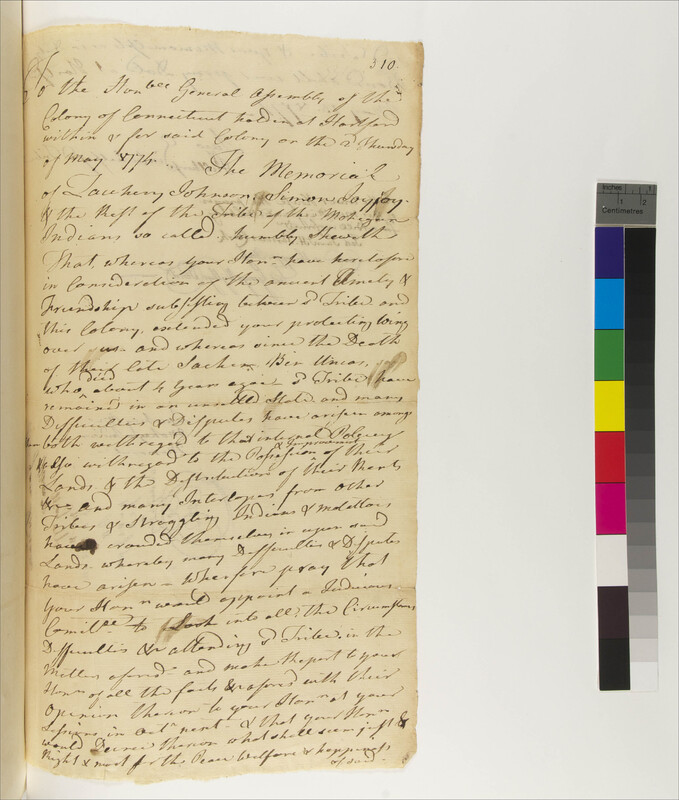 310.
To the Honbls General Assembly of the
Colony of Connecticut holden at Hartford
within & for said Colony on the 2d Thursday
of May 1774. The Memorial
of Zachery Johnson, Simon Joyjoy
& the Rest of the Tribe of the Mohegan
Indians so called humbly Sheweth
That, whereas your Honrs have heretofore
in Consideration of the ancient Amety &
Friendship subsisting between sd Tribe and
this Colony, extended your protecting wing
over us and whereas since the Death
of their late Sachem Ben Uncas,
who died about 4 years agoe sd Tribe have
remained in an unsettld State and many
Difficulties & Disputes have arisen among
both with regard to that internal Polycy
& also with regard to the Possession & improvement of their
Lands & the Distribution of their Rents
&c and many Interlopers from other
Tribes & Straggling Indians & molattoes
have crouded themselves in upon said
Lands whereby many Difficulties & Disputes
have arisen – Wherefore pray that
your Honrs would appoint a Judicious
Comittee to Look into all the Circumstances
Difficulties &c attending sd Tribe in the
Matters aforesd and make Report to your
Honrs of all the facts &c aforesd with their
Opinion thereon to your Honrs at your
Sessions in Octr next – & that your Honrs
would Decree thereon what shall seem just &
Right & most for the Peace Welfare & happiness
of said
Inches
1 2
Centimetres